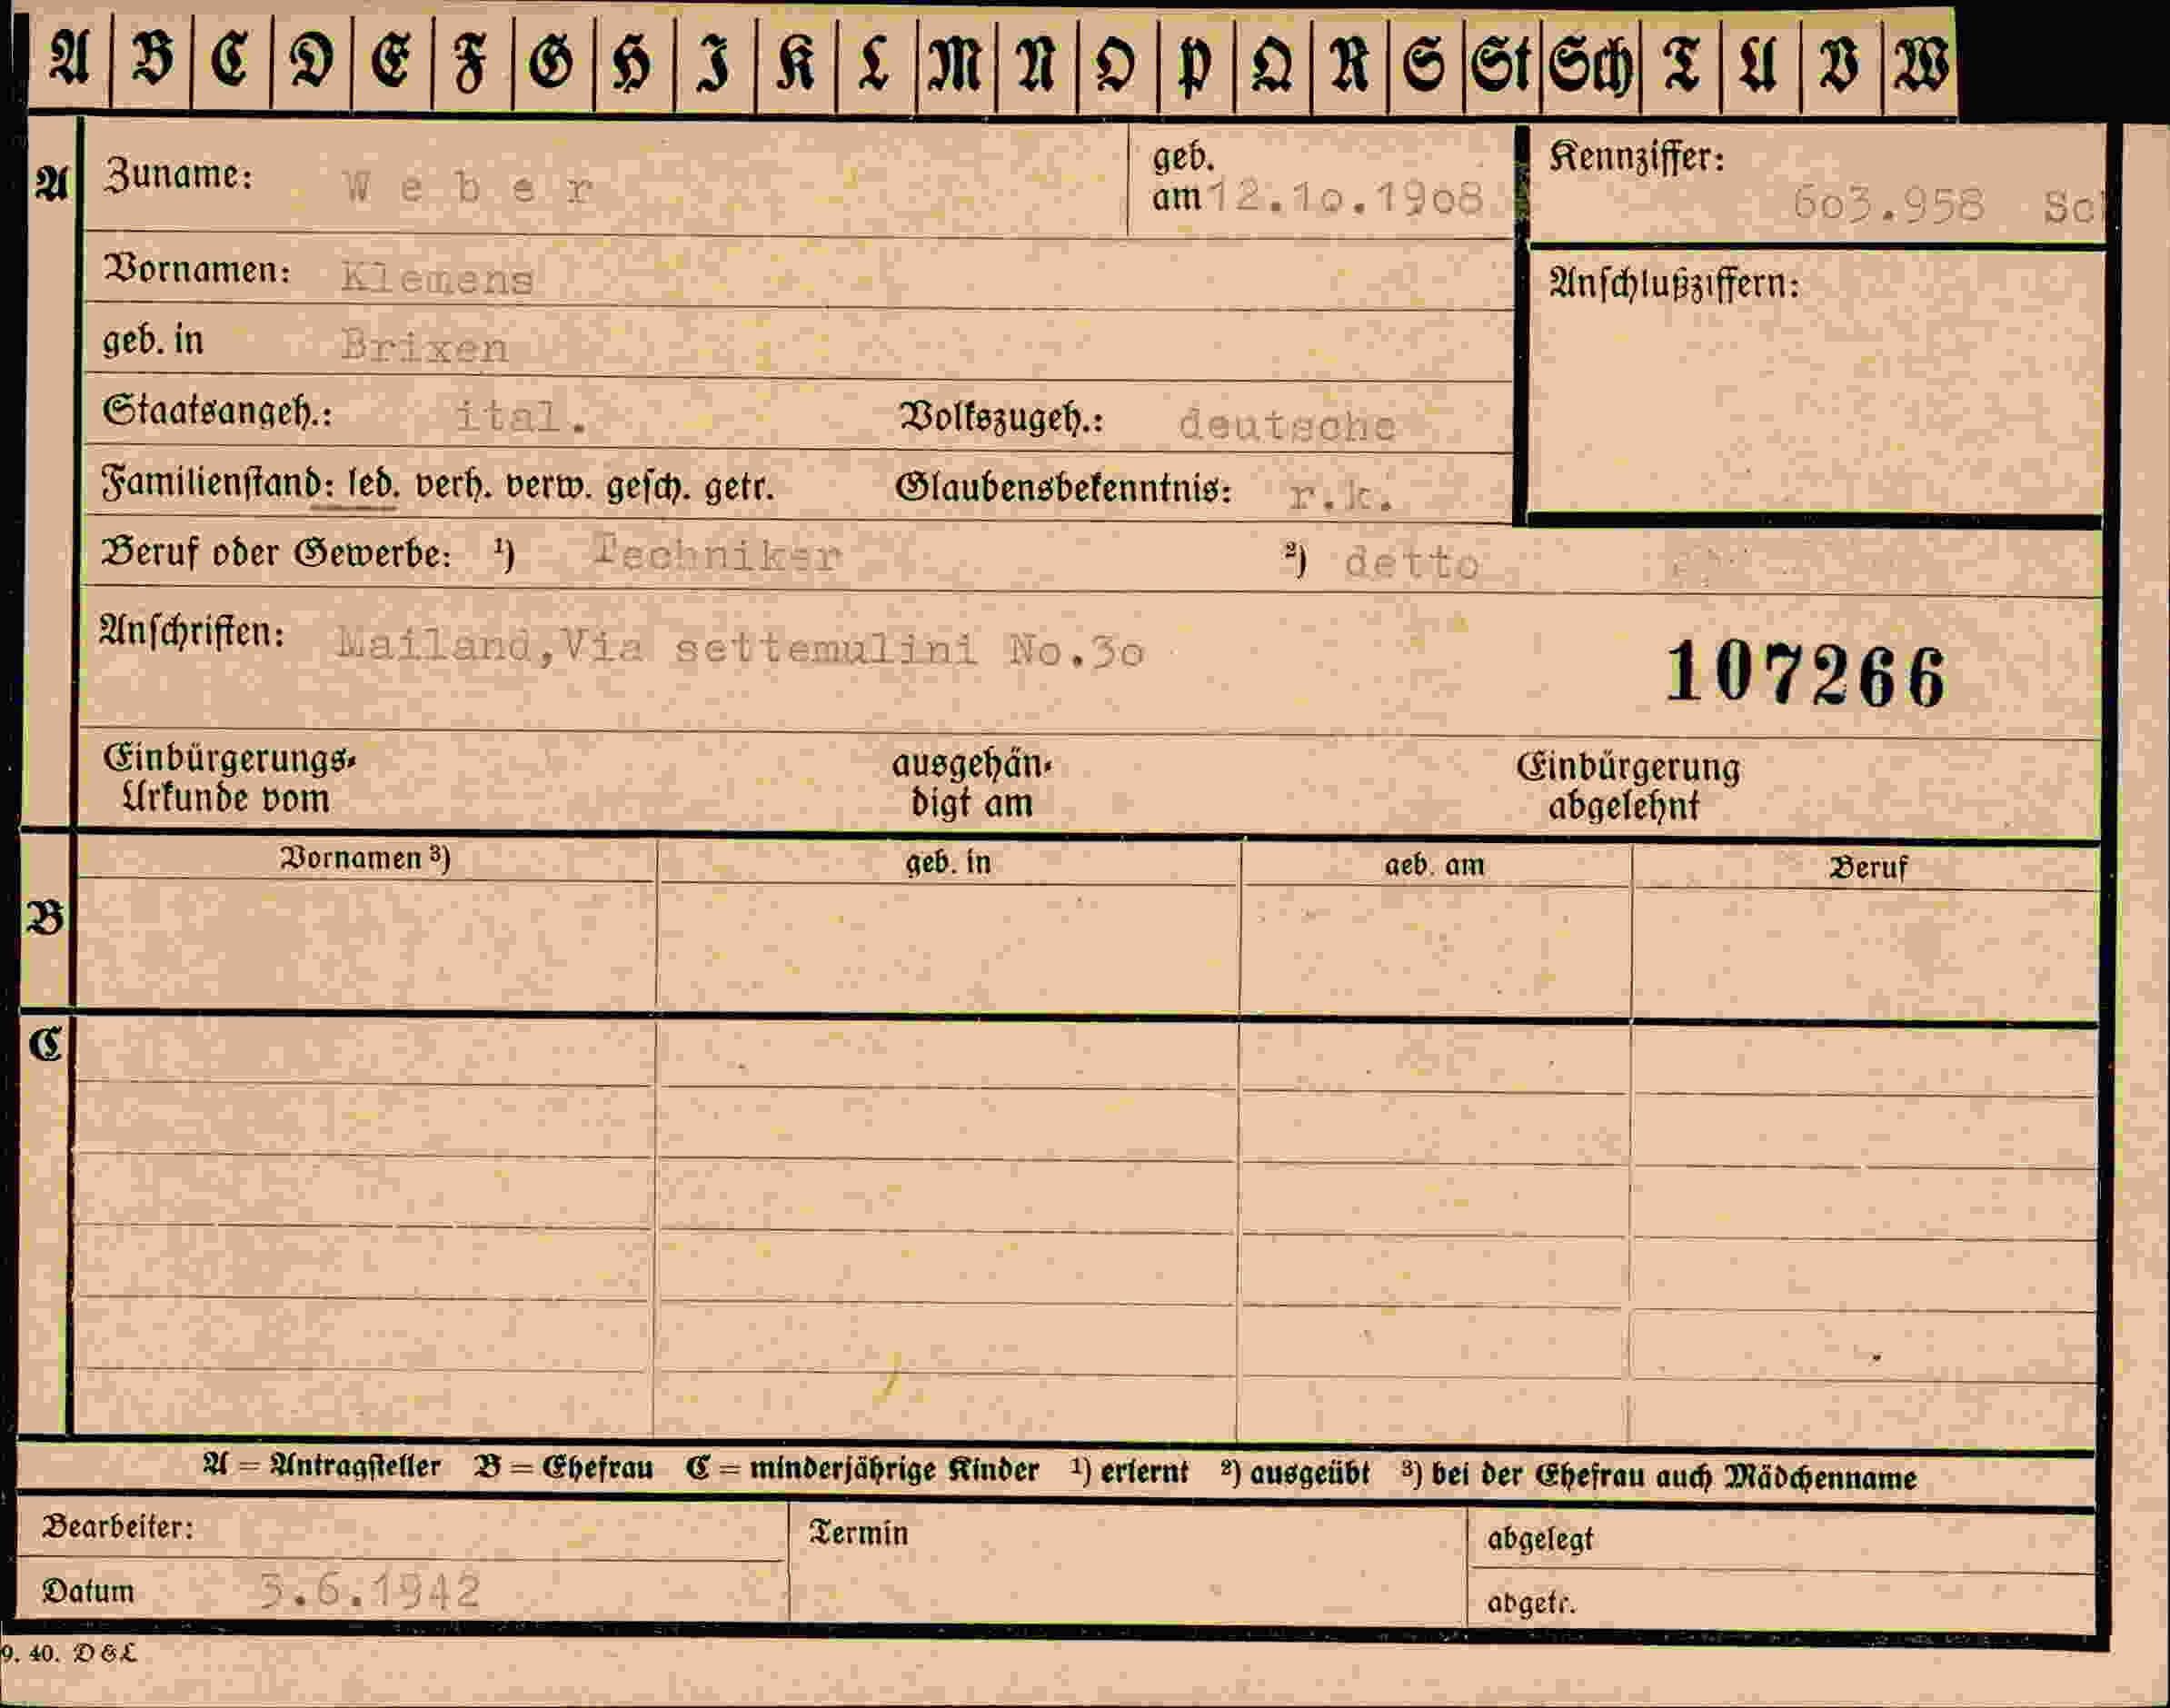 A B C D E F G H I K L M N O P Q R S St Sch T U V W
A Zuname: Weber geb. am 12.10.1908 Kennziffer: 603.958 Sch
Vornamen: Klemens Anschlußziffern:
geb. in Brixen
Staatsangeh.: ital. Volkszugeh.: deutsche
Familienstand: led. verh. verw. gesch. getr. Glaubensbekenntnis: r.k.
Beruf oder Gewerbe: ¹) Techniker ²) detto
Anschriften: Mailand,Via settemulini No.30 107266
Einbürgerungs- ausgehän- Einbürgerung
Urkunde vom digt am abgelehnt
Vornamen ³) geb. in geb. am Beruf
B
C
A = Antragsteller B = Ehefrau C = minderjährige Kinder ¹) erlernt ²) ausgeübt ³) bei der Ehefrau auch Mädchenname
Bearbeiter: Termin abgelegt
Datum 3.6.1942 abgetr.
9. 40. D & L